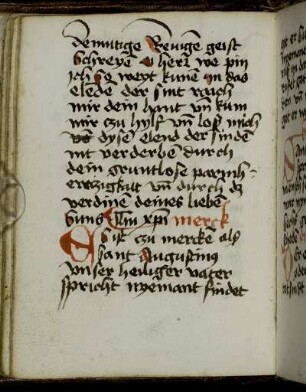 demutige Rewige geist
Schreye O herr we pin
ich so weyt kume in das
elede der sint rach
mir dein hant vn̄ kum
mir czu hylf vn̄ loß mich
dysen elend der sinden
nit verderben durch
dein gruntlose parmh-
erczigkait vn̄ durch dz
verdine deines lieben
suns xp̄i merck
Es ist czu mercke als
sant Augustinus
vnser heiliger vater
spricht nyemant findet